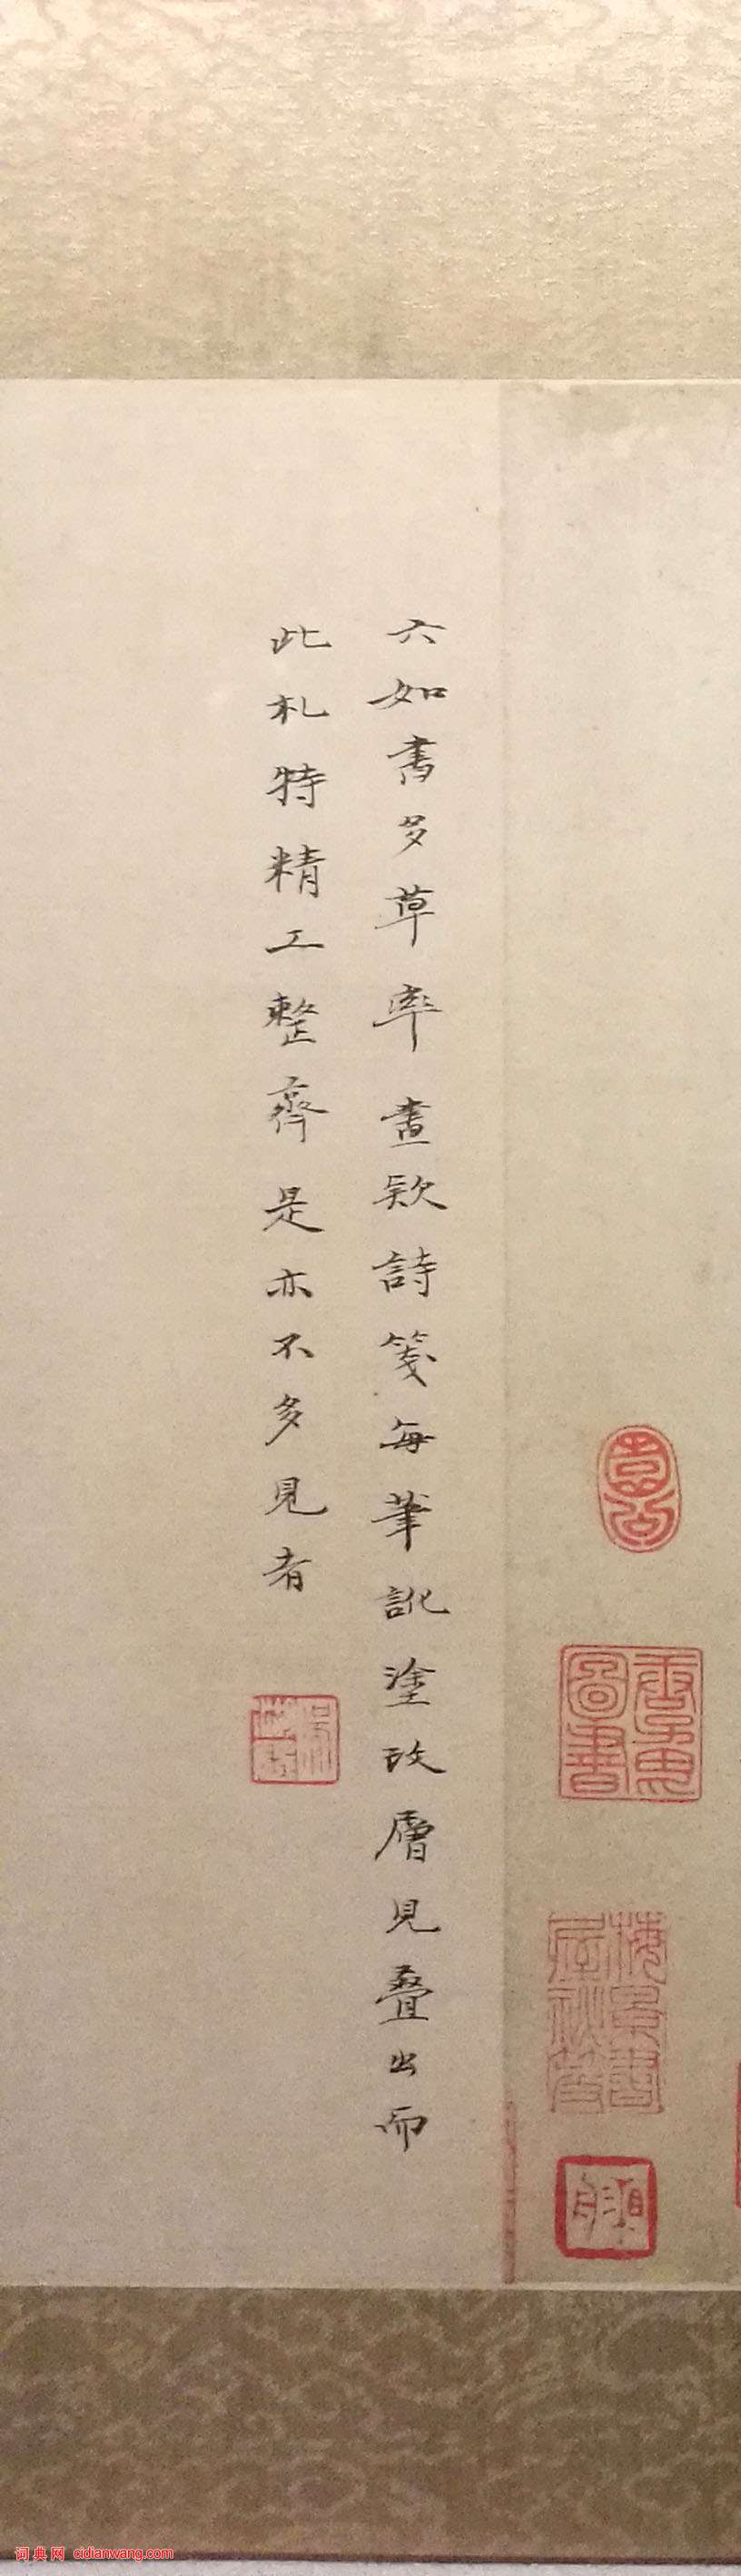 六如書多草率畫欵詩箋每筆訛塗改層見叠出而
此札特精工整齊是亦不多見者
圖書
词典网 cidianwang.com